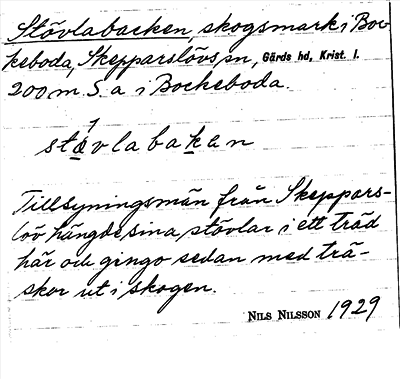 Stövlabacken, skogsmark i Boc
keboda, Skepparslövs sn, Gärds hd, Krist. l.
200 m. S. a i Bockeboda.
1
stävlabakan
Tillsyningsmän från Skeppars-
löv hängde sina stövlar i ett träd
här och gingo sedan med trä-
skor ut i skogen.
NILS NILSSON 1929